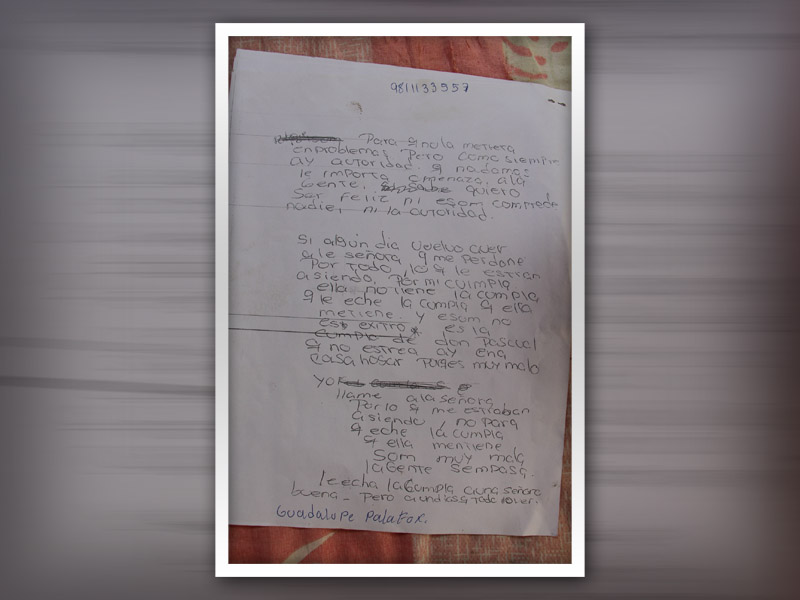 9811133557
Para q no la metiera
en problemas Pero como siempre
ay autoridad. q nadamas
le importa amenaza. ala
Gente. quiero
Ser Feliz ni esom comprede
nadie, ni la autoridad.
Si algun dia vuelvo aver
a le señora q me Perdone
Por todo, lo q le estran
asiendo, Por mi culmpla
ella no tiene la cumpla
q le eche la cumpla q ella
metiene. y esom no
est exitro es la
cumpla de don Pascual
q no estrea ay ena
casa hogar Porqes muy malo
YO
llame ala señora
Por lo q me estraban
asiendo, no para
q eche la cumpla
q ella mentiene
Som muy mala
la Gente sempasa.
le echa la cumpla auna señora
buena - Pero
Guadalupe Palafox.